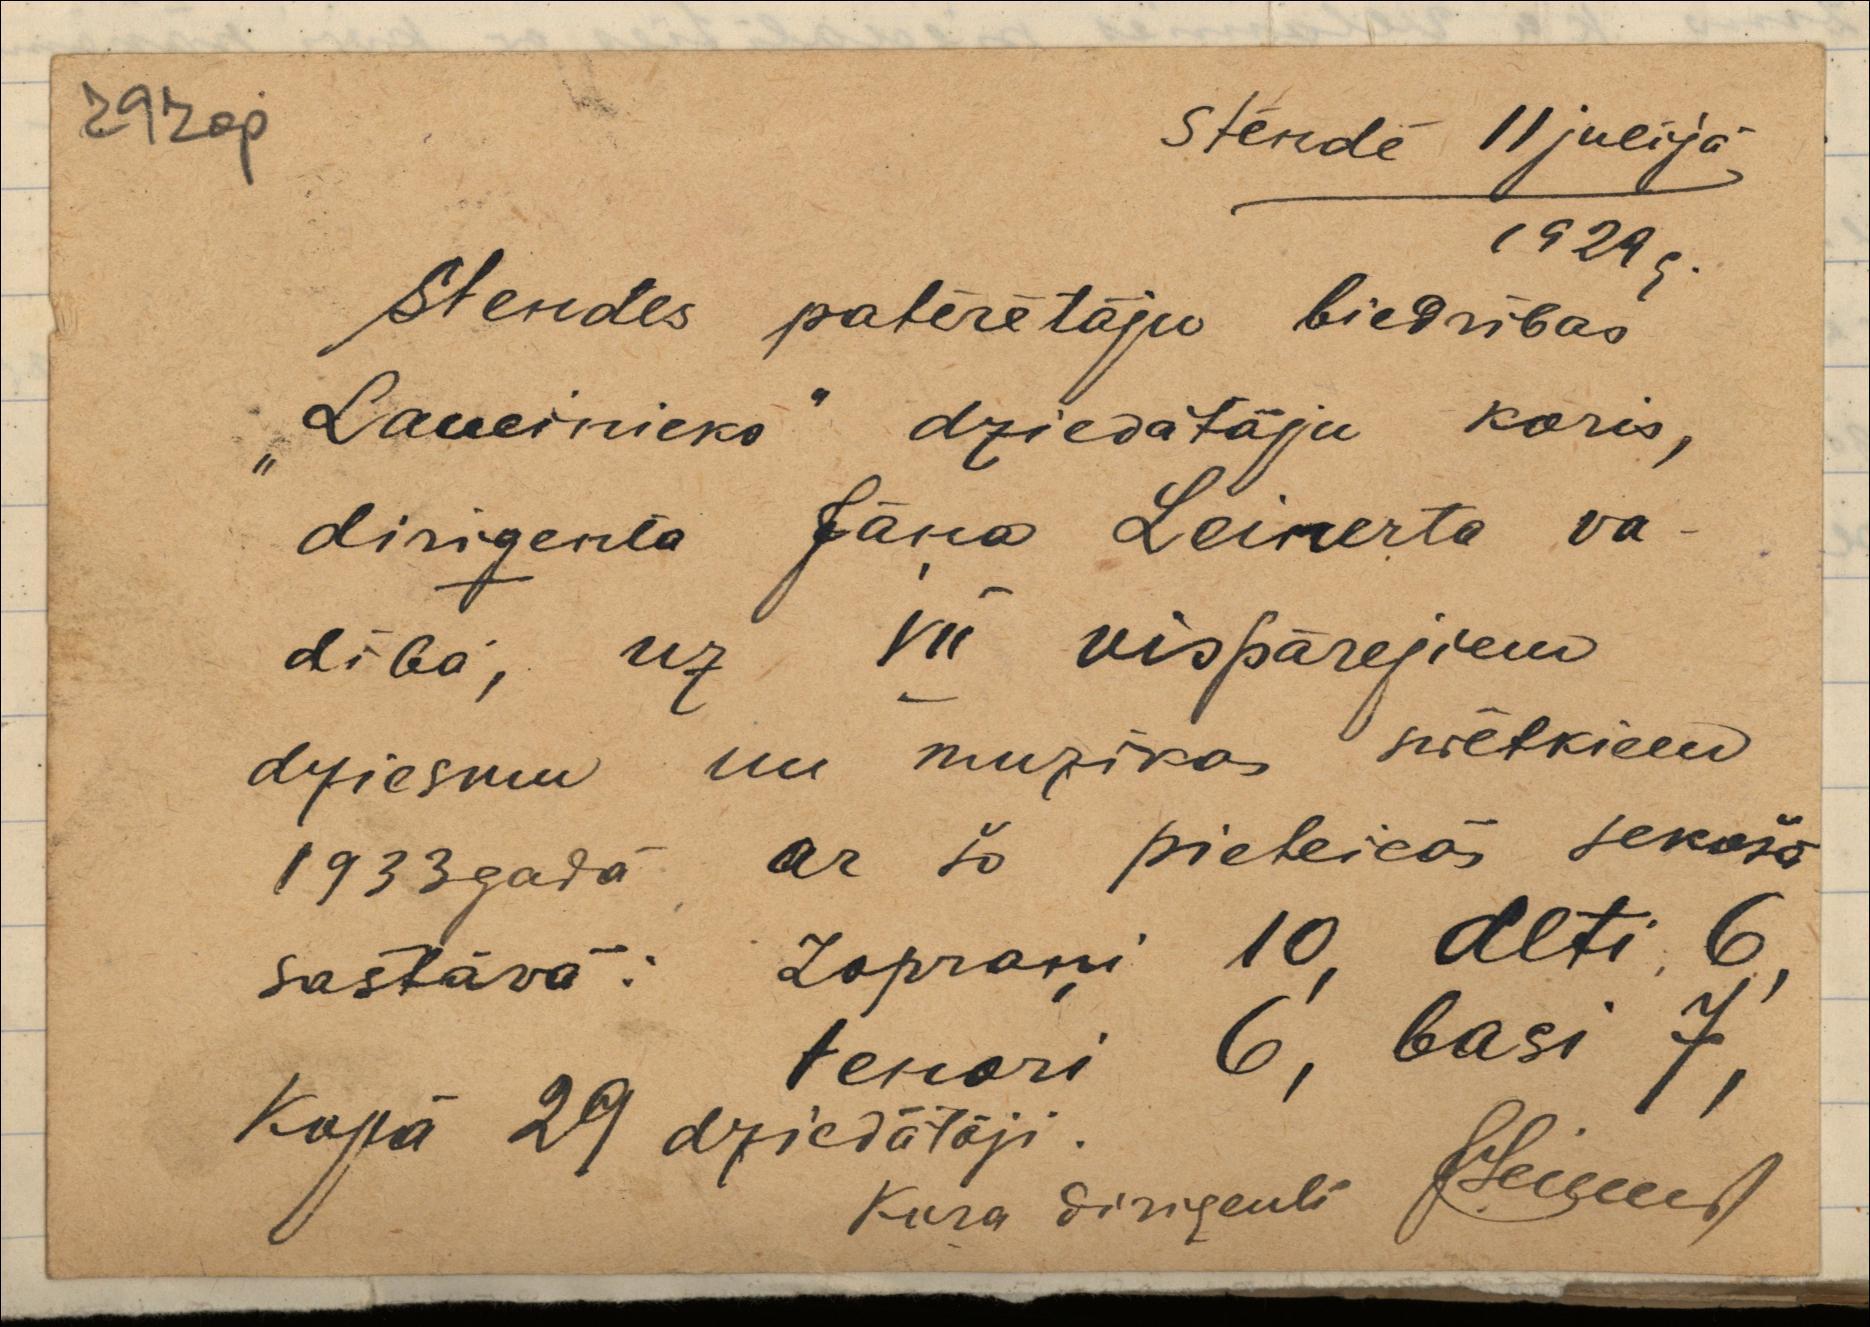 Stendē 11 julijā
1929 g.
Stendes patērētāju biedrības
„Laucinieks" dziedātāju koris,
dirigenta Jāņa Leinerta va-
dībā, uz VII vispārejiem
dziesmu un muzikas svētkiem
1933 gadā ar šo pieteicās sekošā
sastāvā: Zoprani 10, alti 6,
tenori 6, basi 7,
Kopā 29 dziedātāji.
Kora dirigents